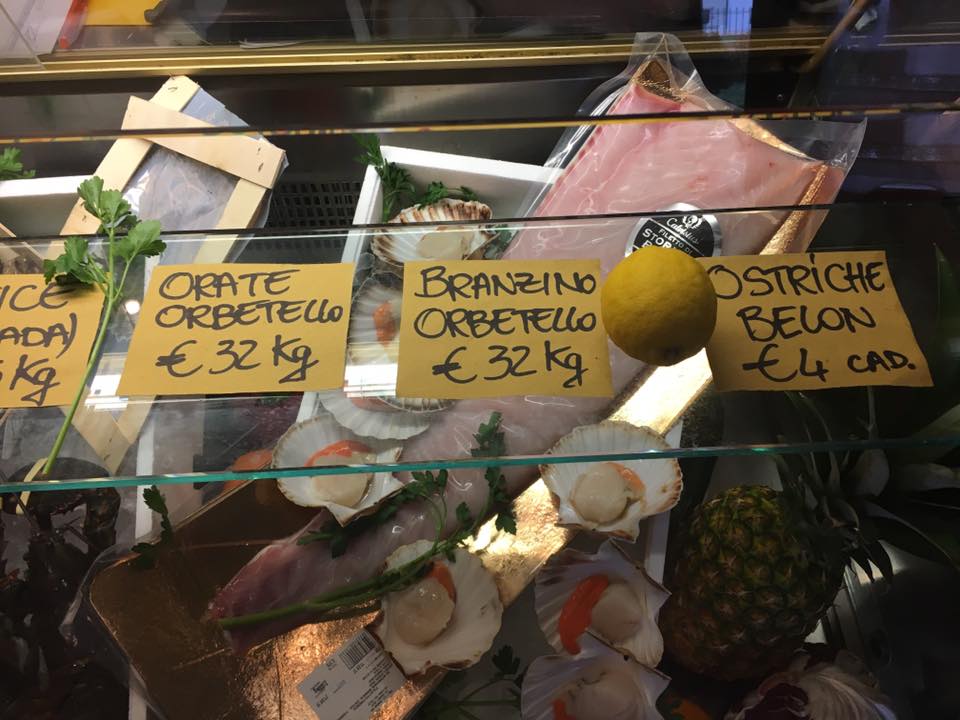 ICE
ADA)
Kg
ORATE
ORBETELLO
€ 32 Kg
BRANZINO
ORBETELLO
€ 32 Kg
OSTRICHE
BELON
€4 CAD.
FILETTO DI
STOR